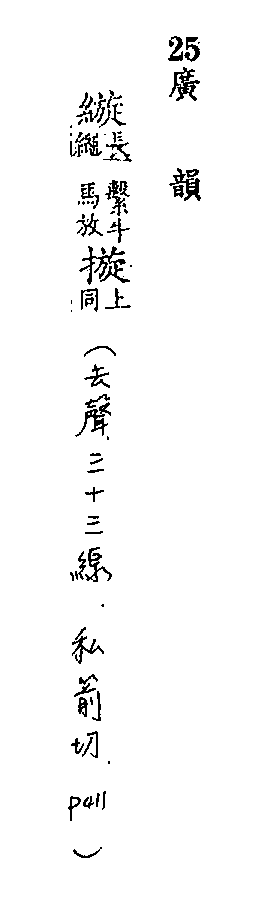 25廣韻
縼長繩繫牛馬放㨬上同（去聲三十三線．私箭切．P411）